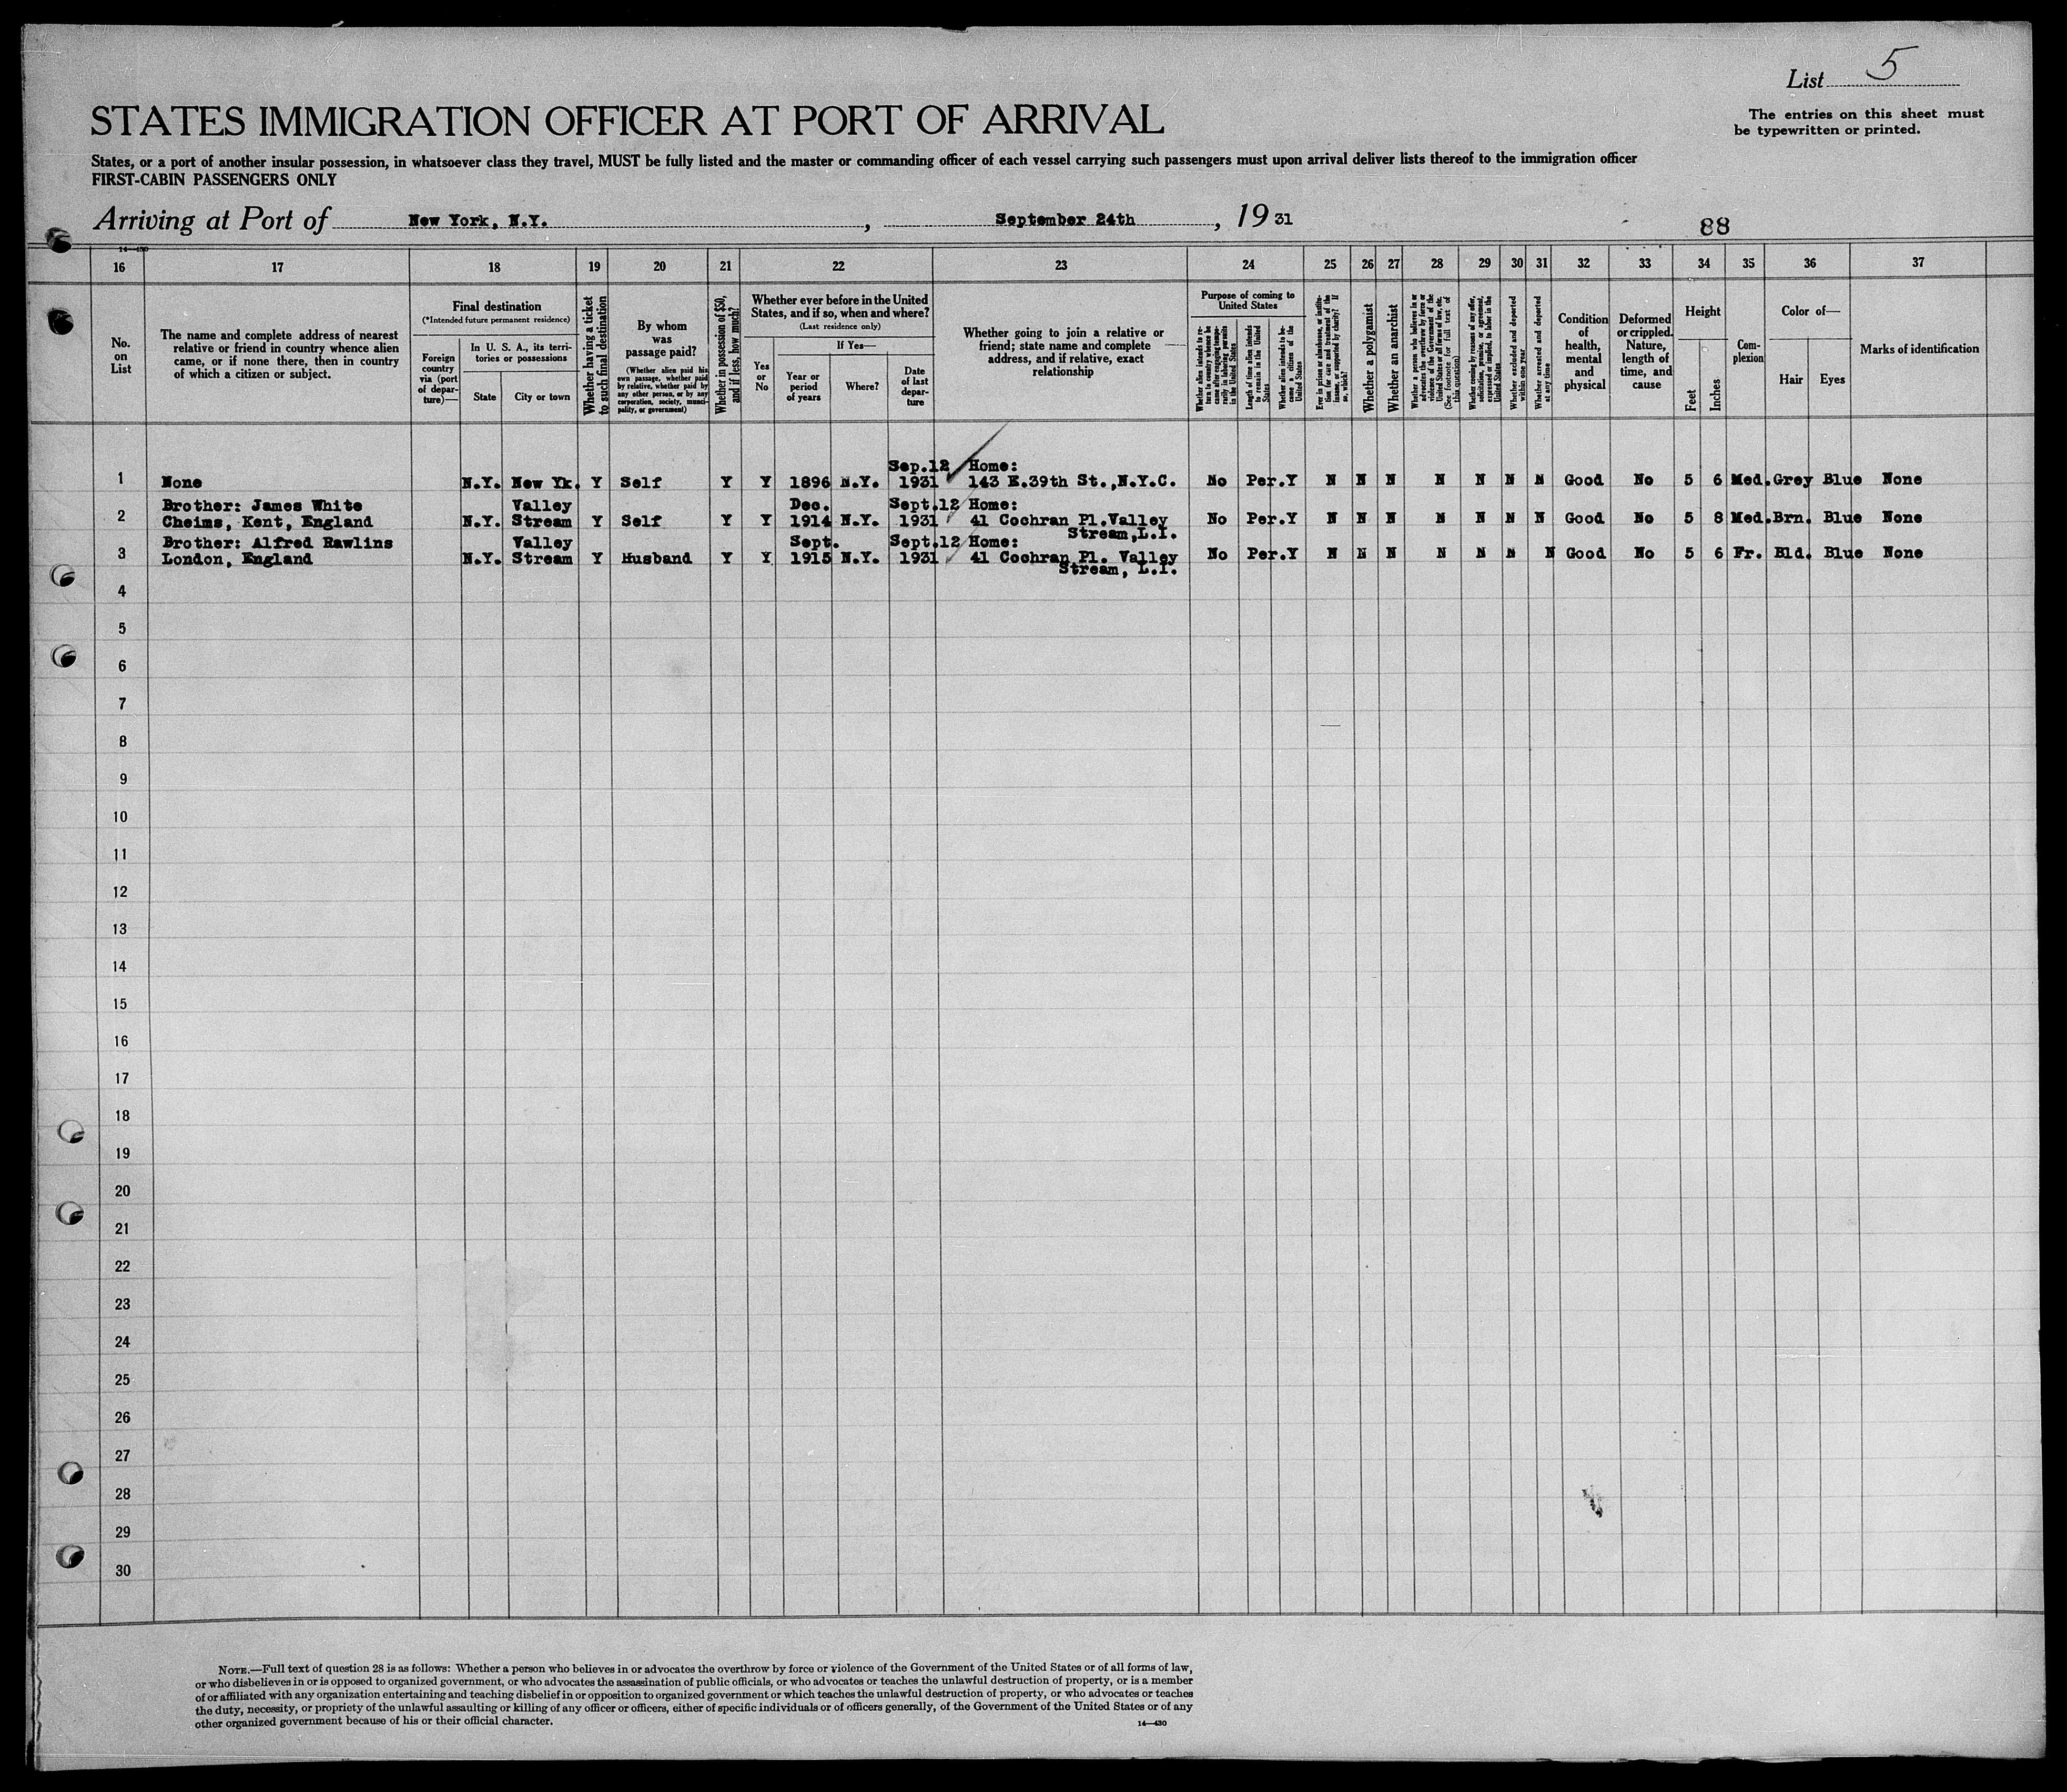 List 5
The entries on this sheet must
be typewritten or printed.
STATES IMMIGRATION OFFICER AT PORT OF ARRIVAL
States, or a port of another insular possession, in whatsoever class they travel, MUST be fully listed and the master or commanding officer of each vessel carrying such passengers must upon arrival deliver lists thereof to the immigration officer
FIRST-CABIN PASSENGERS ONLY
Arriving at Port of New York, N.Y., September 24th, 1931
88
14—430
16 17 18 19 20 21 22 23 24 25 26 27 28 29 30 31 32 33 34 35 36 37
No. on List
The name and complete address of nearest
relative or friend in country whence alien
came, or if none there, then in country
of which a citizen or subject.
Final destination
(*Intended future permanent residence)
Foreign country via (port of departure)—
In U. S. A., its territories or possessions
State
City or town
Whether having a ticket to such final destination
By whom was passage paid?
(Whether alien paid his own passage, whether paid by relative, whether paid by any other person, or by any corporation, society, municipality, or government)
Whether in possession of $50, and if less, how much?
Whether ever before in the United States, and if so, when and where?
(Last residence only)
Yes or No
If Yes—
Year or period of years
Where?
Date of last departure
Whether going to join a relative or
friend; state name and complete
address, and if relative, exact
relationship
Purpose of coming to United States
Whether alien intends to return to country whence he came after engaging temporarily in laboring pursuits in the United States
Length of time alien intends to remain in the United States
Whether alien intends to become a citizen of the United States
Ever in prison or almshouse, or institution for care and treatment of the insane, or supported by charity? If so, which?
Whether a polygamist
Whether an anarchist
Whether a person who believes in or advocates the overthrow by force or violence of the Government of the United States or all forms of law, etc. (See footnote for full text of this question)
Whether coming by reason of any offer, solicitation, promise, or agreement, expressed or implied, to labor in the United States
Whether excluded and deported within one year
Whether arrested and deported at any time
Condition of health, mental and physical
Deformed or crippled. Nature, length of time, and cause
Height
Feet
Inches
Complexion
Color of—
Hair
Eyes
Marks of identification
Sep.12 Home:
1 None N.Y. New Yk. Y Self Y Y 1896 N.Y. 1931 143 E.39th St.,N.Y.C. No Per. Y N N N N N N N Good No 5 6 Med. Grey Blue None
Brother: James White Valley Dec. Sept.12 Home:
2 Cheims, Kent, England N.Y. Stream Y Self Y Y 1914 N.Y. 1931 41 Cochran Pl.Valley No Per. Y N N N N N N N Good No 5 8 Med. Brn. Blue None
Stream,L.I.
Brother: Alfred Rawlins Valley Sept. Sept.12 Home:
3 London, England N.Y. Stream Y Husband Y Y 1915 N.Y. 1931 41 Cochran Pl. Valley No Per. Y N N N N N N N Good No 5 6 Fr. Bld. Blue None
Stream, L.I.
4
5
6
7
8
9
10
11
12
13
14
15
16
17
18
19
20
21
22
23
24
25
26
27
28
29
30
NOTE.—Full text of question 28 is as follows: Whether a person who believes in or advocates the overthrow by force or violence of the Government of the United States or of all forms of law,
or who disbelieves in or is opposed to organized government, or who advocates the assassination of public officials, or who advocates or teaches the unlawful destruction of property, or is a member
of or affiliated with any organization entertaining and teaching disbelief in or opposition to organized government or which teaches the unlawful destruction of property, or who advocates or teaches
the duty, necessity, or propriety of the unlawful assaulting or killing of any officer or officers, either of specific individuals or of officers generally, of the Government of the United States or of any
other organized government because of his or their official character.
14—430